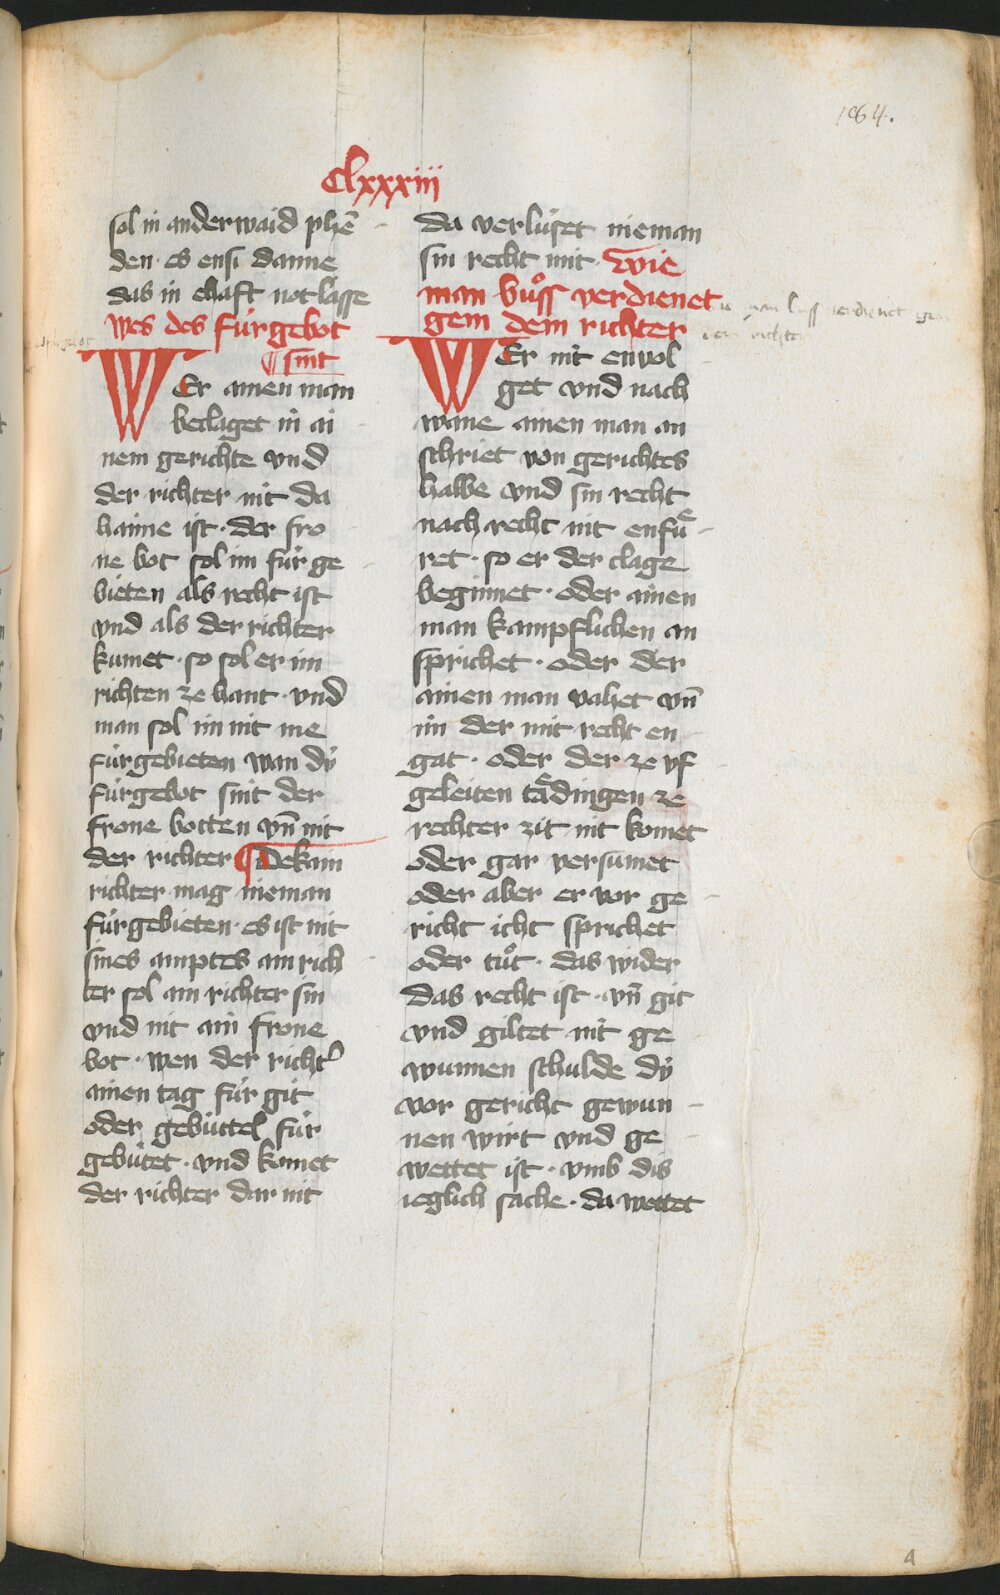 184.
Clxxxiii
sol in anderwaid phē
den · es ensi danne
das in ehaft not lasse
wes des fúrgebot
¶ sint
WEr ainen man
beclaget in ai
nem gerichte vnd
der richter nit da
haime ist · der fro
ne bot sol im fúr ge
bieten als recht ist
vnd als der richter
kumet · so sol er im
richten ze hant · vnd
man sol im nit me
fúrgebieten wan dÿ
fúrgebot sint der
frone botten vn̄ nit
der richter ¶ Dekain
richter mag nieman
fúrgebieten · es ist nit
sines amptes ain rich
ter sol ain richter sin
vnd nit ain frone
bot · wen der richt͛
ainen tag fúr git
oder gebúttel fúr
gebútet · vnd komet
der richter dar nit
da verlúset nieman
sin recht mit · wie
man buͦss verdienet
gem dem richter
WEr nit envol
get vnd nach
wane ainen man an
schriet von gerichtes
halbe vnd sin recht
nach recht nit enfuͤ
ret · so er der clage
beginnet · oder ainen
man kampflichen an
sprichet · oder der
ainen man vahet vn̄
im der mit recht en
gat · oder der ze vf
geleiten taͤdingen ze
rechter zit nit komet
oder gar versumet
oder aber er vor ge
richt icht sprichet
oder tuͦt · das wider
das recht ist · vn̄ git
vnd giltet nit ge
wunnen schulde dÿ
vor gericht gewun
nen wirt vnd ge
wettet ist · vmb dis
ieglich sache · da wettet
man buss verdienet gen
dem richter
4